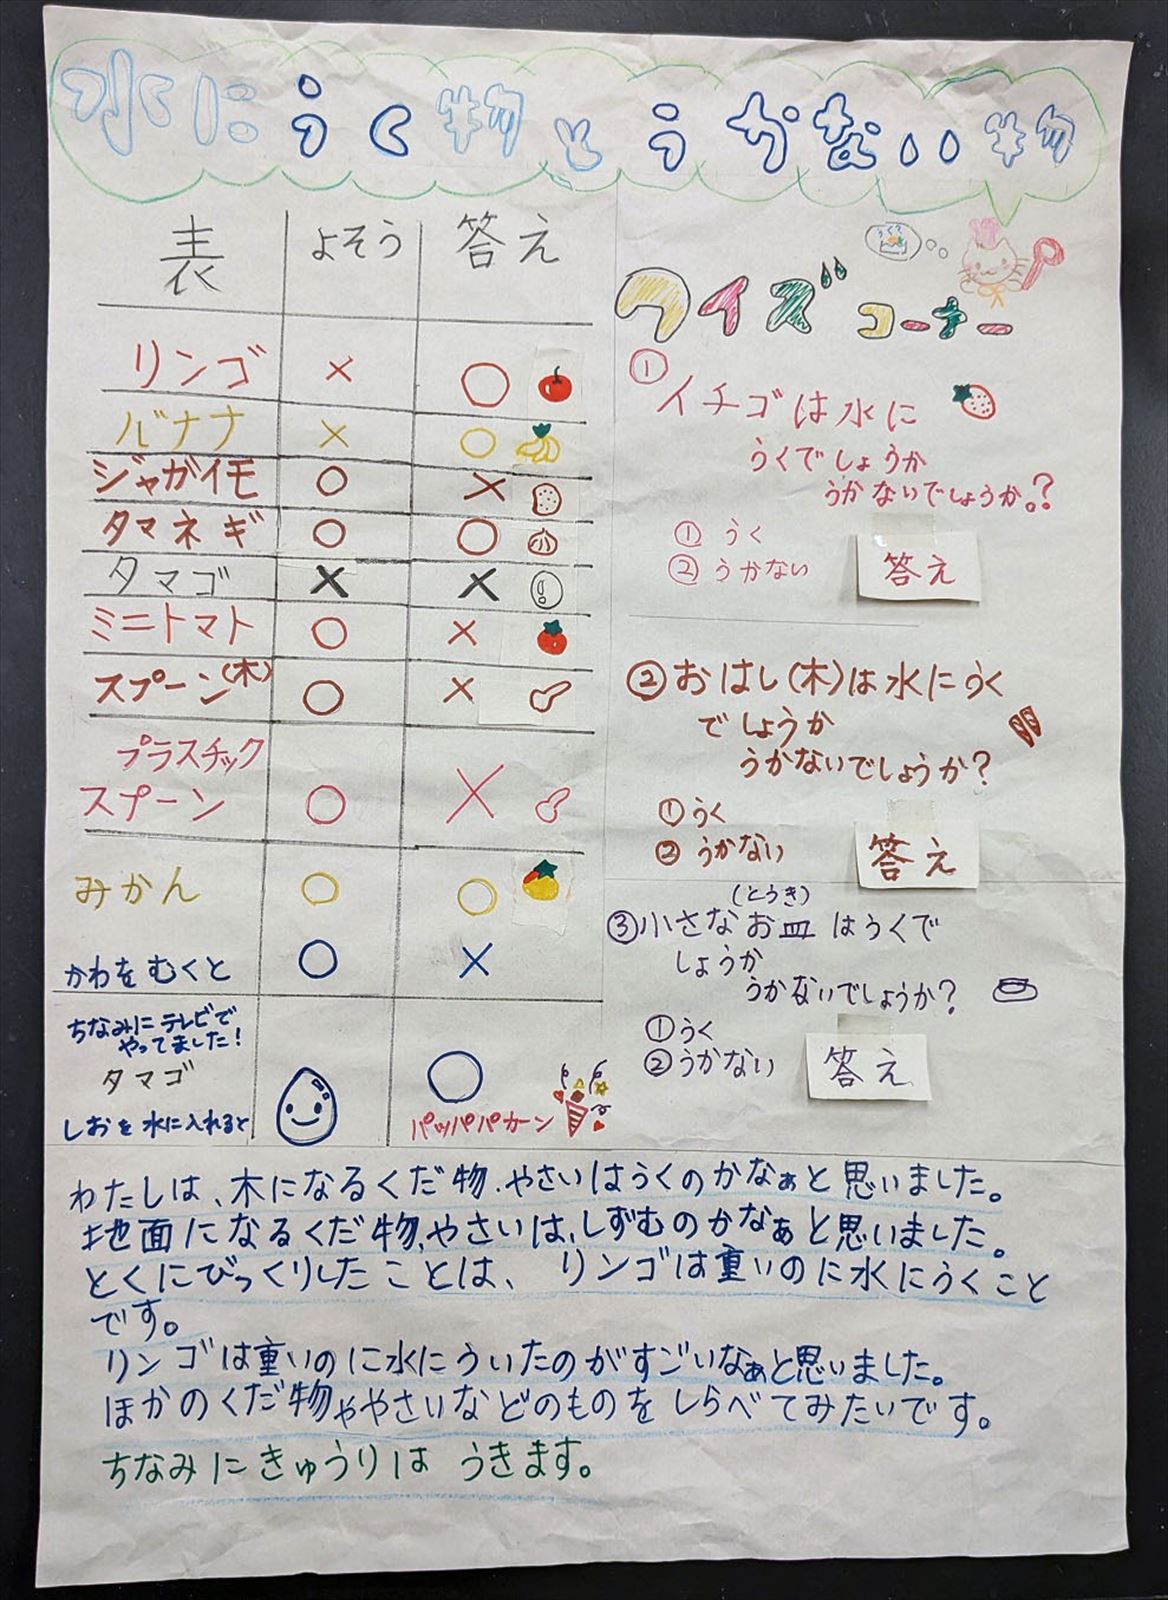 水にうく物とうかない物
表 よそう 答え
リンゴ × ○
バナナ × ○
ジャガイモ ○ ×
タマネギ ○ ○
タマゴ × ×
ミニトマト ○ ×
スプーン(木) ○ ×
プラスチック
スプーン ○ ×
みかん ○ ○
かわをむくと ○ ×
ちなみにテレビで
やってました!
タマゴ ○
しおを水に入れると パッパパカーン
うく?
クイズコーナー
①イチゴは水に
うくでしょうか
うかないでしょうか。?
①うく
②うかない
答え
②おはし(木)は水にうく
でしょうか
うかないでしょうか?
①うく
②うかない
答え
(とうき)
③小さなお皿はうくで
しょうか
うかないでしょうか?
①うく
②うかない
答え
わたしは、木になるくだ物、やさいはうくのかなぁと思いました。
地面になるくだ物、やさいは、しずむのかなぁと思いました。
とくにびっくりしたことは、リンゴは重いのに水にうくこと
です。
リンゴは重いのに水にういたのがすごいなぁと思いました。
ほかのくだ物ややさいなどのものをしらべてみたいです。
ちなみにきゅうりは うきます。